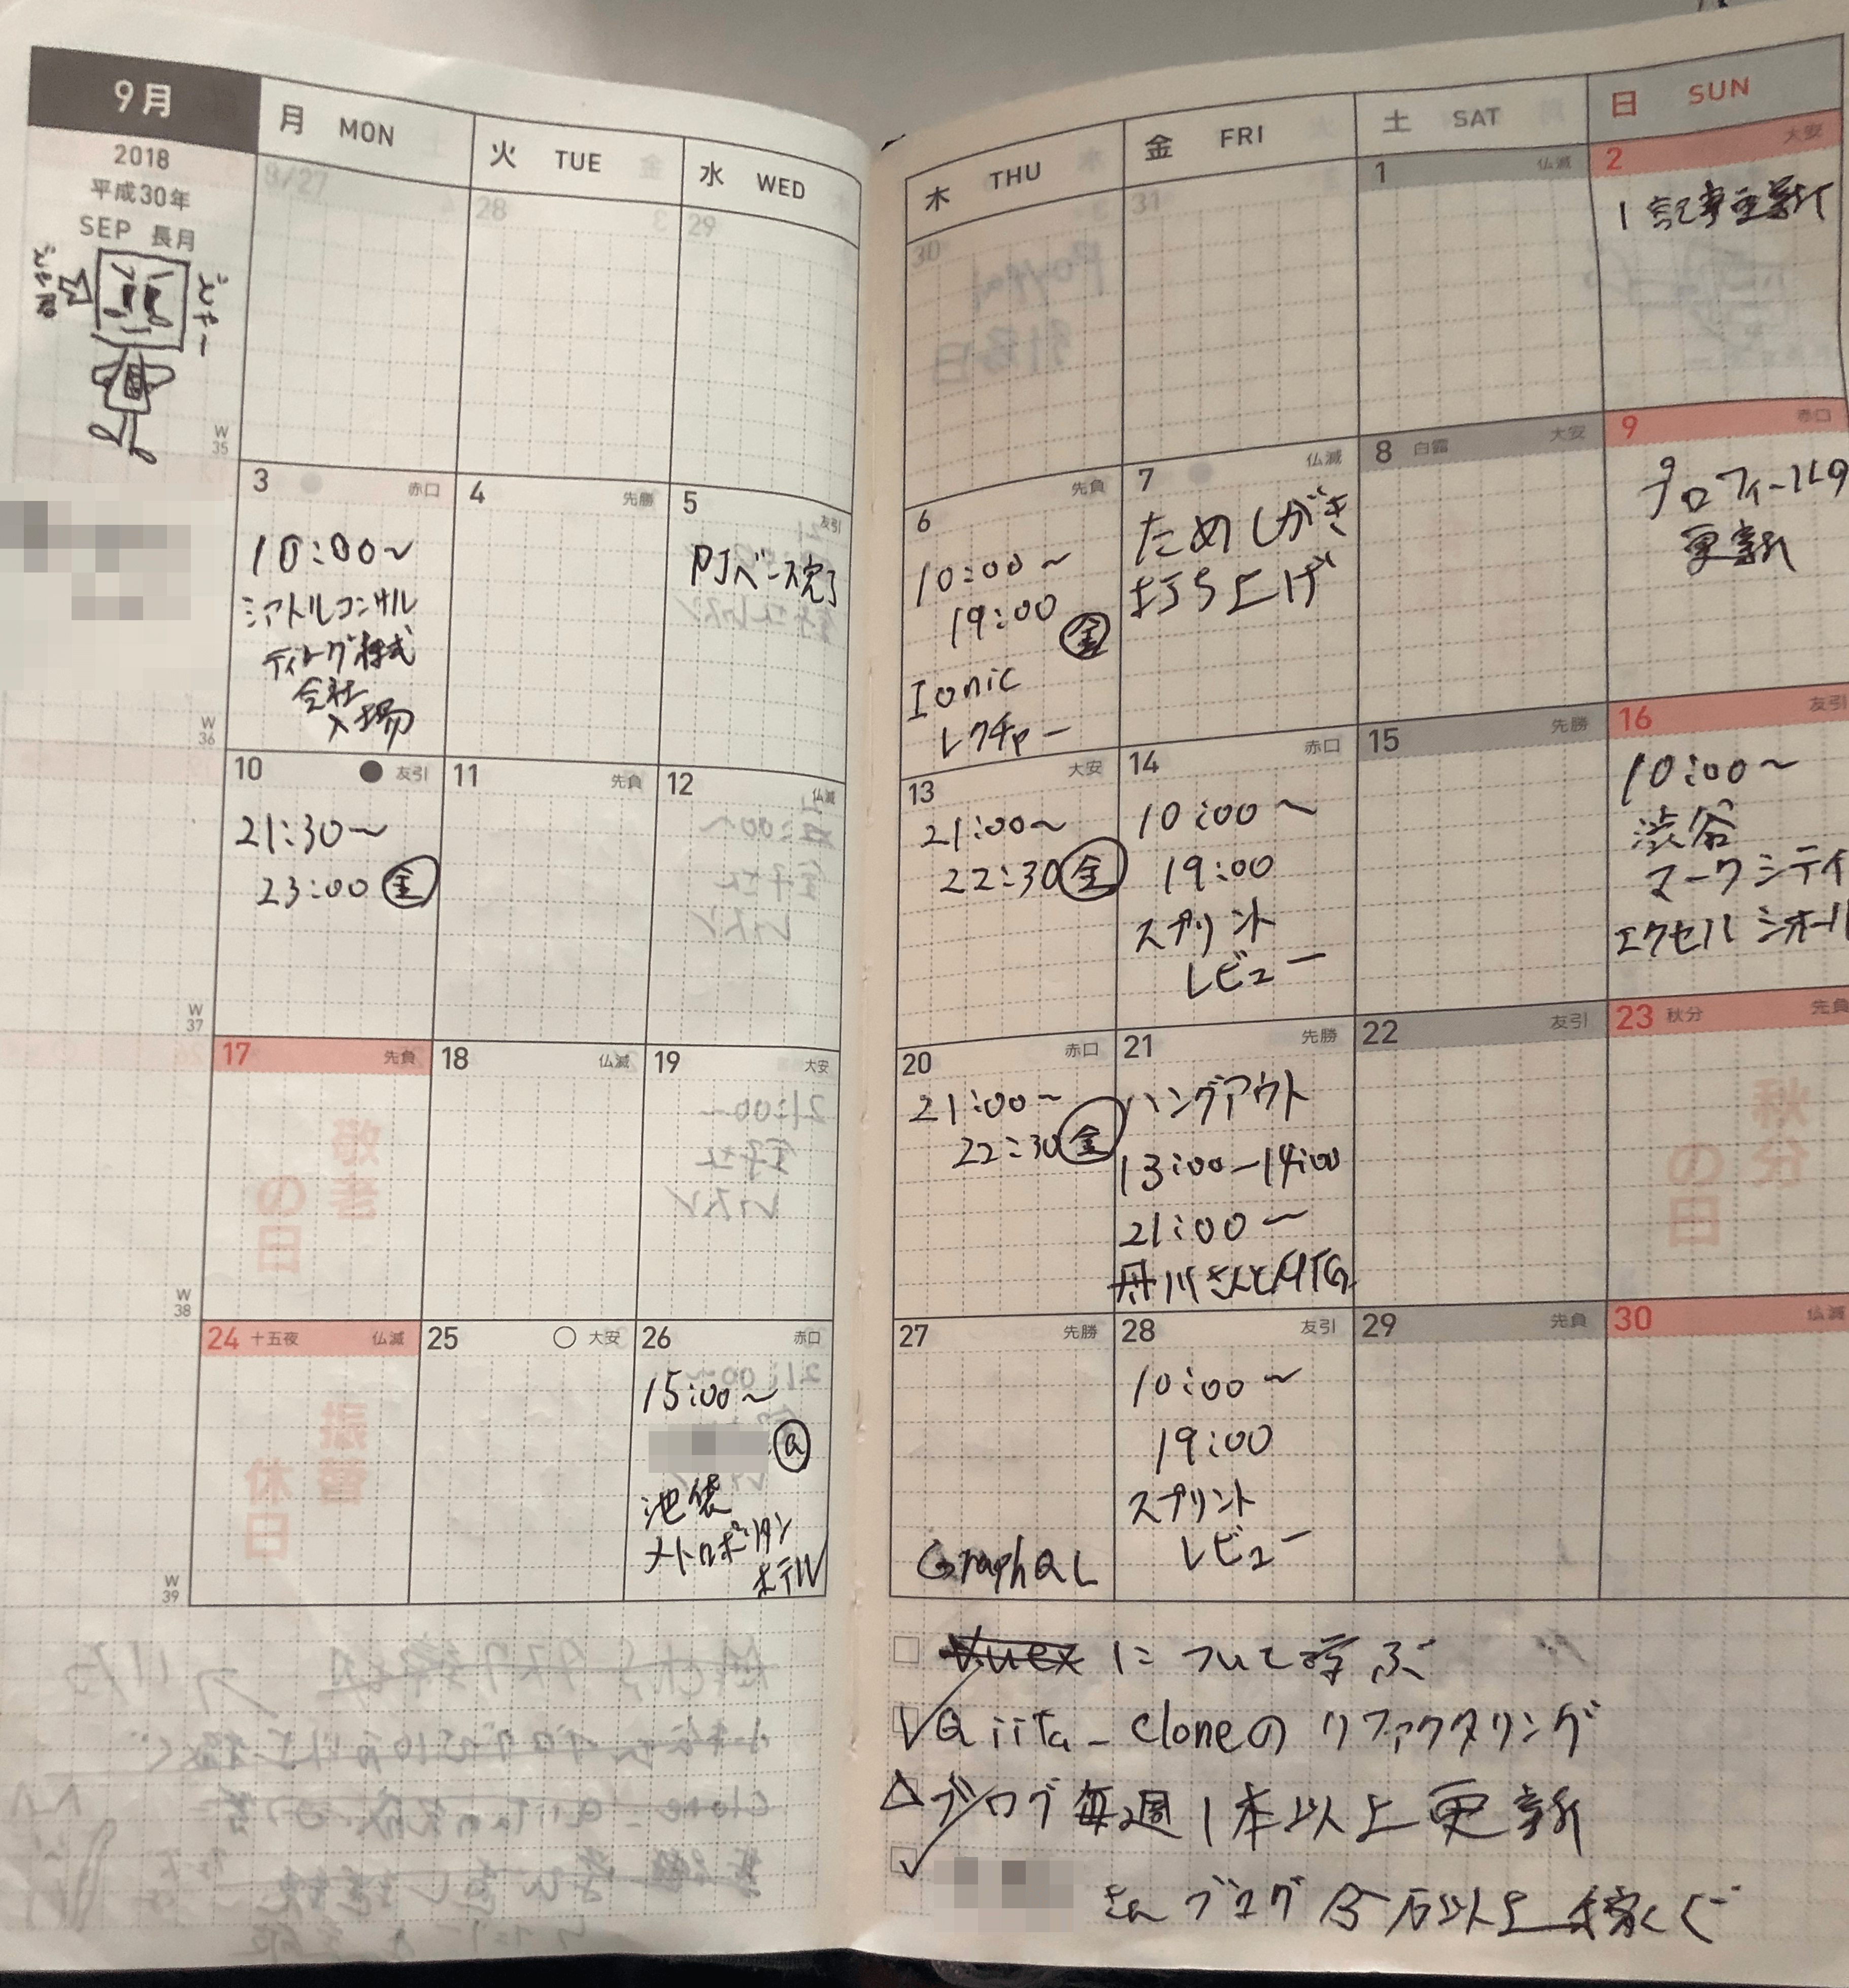 9月
2018
平成30年
SEP 長月
月 MON
火 TUE
水 WED
木 THU
金 FRI
土 SAT
日 SUN
8/27
28
29
30
31
1 仏滅
2 大安
1記事更新
W
35
3 赤口
10:00~
シアトルコンサル
ティング株式
会社
入場
4 先勝
5 友引
PJベース完了
6 先負
10:00~
19:00 金
Ionic
レクチャー
7 仏滅
ためしがき
打ち上げ
8 白露 大安
9 赤口
プロフィールの
更新
W
36
10 友引
21:30~
23:00 金
11 先負
12 仏滅
13 大安
21:00~
22:30 金
14 赤口
10:00~
19:00
スプリント
レビュー
15 先勝
16 友引
10:00~
渋谷
マークシティ
エクセルシオール
W
37
17 先負
18 仏滅
19 大安
20 赤口
21:00~
22:30 金
21 先勝
ハングアウト
13:00-14:00
21:00~
舟川さんとMTG
22 友引
23 秋分 先負
W
38
24 十五夜 仏滅
25 大安
26 赤口
15:00~
@
池袋
メトロポリタン
ホテル
27 先勝
GraphQL
28 友引
10:00~
19:00
スプリント
レビュー
29 先負
30 仏滅
W
39
Vuexについて学ぶ
Qiita_Cloneのリファクタリング
ブログ毎週1本以上更新
さんブログ5万以上稼ぐ